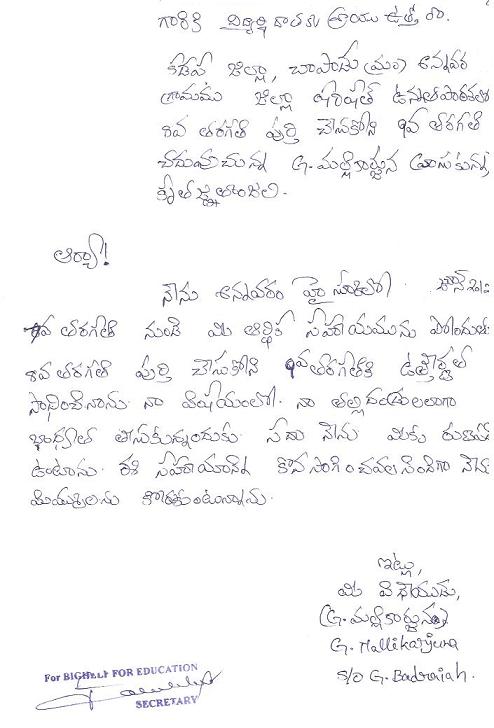 గారికి విద్యార్థి దాతకు ఆయు
కడప జిల్లా, చాపాడు (మం) అన్నవర
గ్రామము జిల్లా పరిషత్ ఉన్నతపాఠశాల
8వ తరగతి పూర్తి చేసుకోని 9వ తరగతి
చదువుచున్న G. మల్లికార్జున వ్రాసుకున్న
కృతజ్ఞతాంజలి.
ఆర్యా!
నేను అన్నవరం హై స్కూలులో జూన్
తరగతి నుండి మీ ఆర్థిక సహాయమును పొందుతు
8వ తరగతి పూర్తి చేసుకోని 9వ తరగతికి ఉత్తీర్ణత
సాధించినాను. నా విషయంలో నా తల్లిదండ్రులలాగా
బాధ్యత తీసుకున్నందుకు సదా నేను మీకు
ఉంటాను. సహాయాన్ని కొనసాగించవలసిందిగా నేను
మిమ్ములను కోరుకుంటున్నాను.
ఇట్లు,
మీ విధేయుడు,
(G. మల్లికార్జున)
G. Mallikarjuna
S/o G. Badraiah.
For BIGHELP FOR EDUCATION
SECRETARY